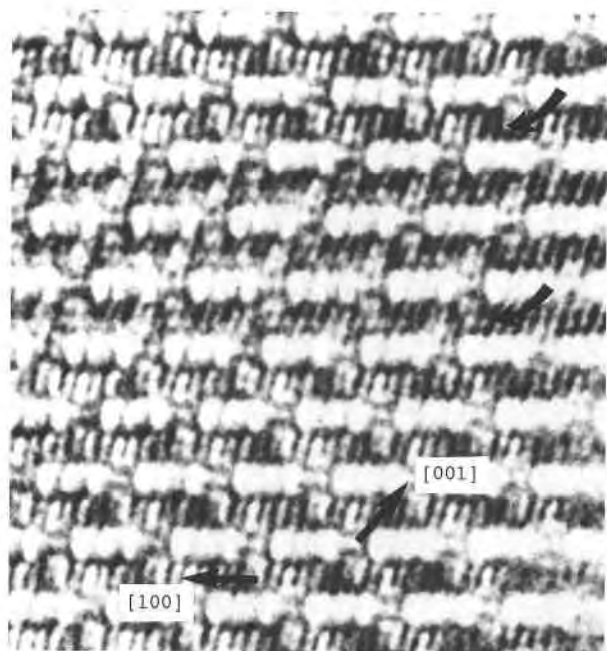 [001]
[100]